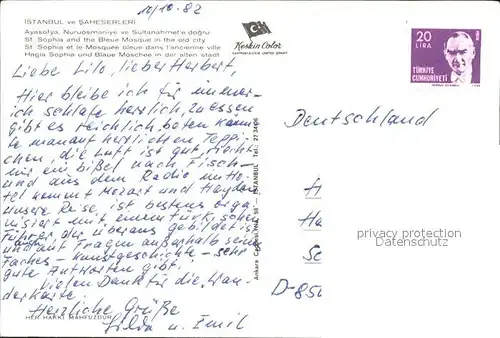 10/10. 82
İSTANBUL ve ŞAHESERLERİ
Ayasofya, Nuruosmaniye ve Sultanahmet'e doğru
St. Sophia and the Bleue Mosque in the old city
St. Sophia et le Mosquee bleue dans l'ancienne ville
Hagia Sophia und Blaue Moschee in der alten stadt
Keskin Color
20
LIRA
TÜRKİYE
CUMHURİYETİ
Liebe Lilo, lieber Herbert,
Hier bleibe ich für immer
ich schlafe herrlich, zu essen
gibt es reichlich, beten kann
man auf herrlichen Teppi-
chen, die Luft ist gut, riecht
nur ein bißel nach Fisch
und aus dem Radio im Ho-
tel kommt Mozart und Haydn
Unsere Reise ist bestens orga-
nisiert mit einem türk.
Führer der überaus gebildet ist
und auf Fragen außerhalb seines
Faches - Kunstgeschichte - sehr
gute Antworten gibt.
Vielen Dank für die Wan-
derkarte.
Herzliche Grüße
Hilda u. Emil
Deutschland
D-85
HER HAKKI MAHFUZDUR
Ankara Cad. No. 98 - İSTANBUL Tel.: 27
privacy protection
www.ansichtskartenversand.com